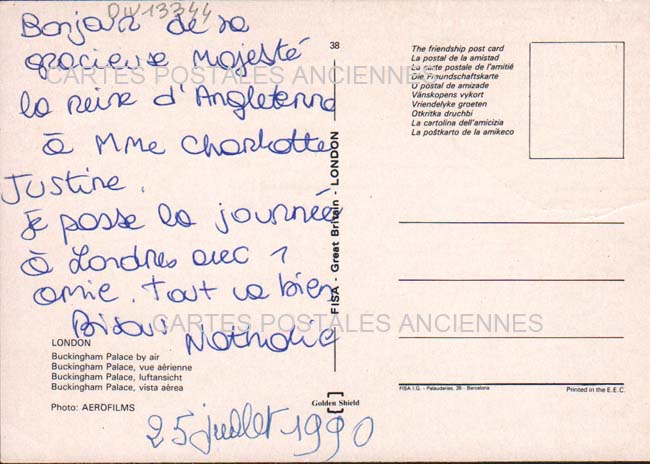 DIV13344
Bonjour de sa
gracieuse Majesté
la reine d'Angleterre
à Mme Charlotte
Justine.
Je passe la journée
à Londres avec 1
amie. Tout va bien
Bisous Nathalie
CARTES POSTALES ANCIENNES
CARTES POSTALES ANCIENNES
LONDON
Buckingham Palace by air
Buckingham Palace, vue aérienne
Buckingham Palace, luftansicht
Buckingham Palace, vista aérea
Photo: AEROFILMS
25 juillet 1990
38
FISA - Great Britain - LONDON
Golden Shield
The friendship post card
La postal de la amistad
La carte postale de l'amitié
Die Freundschaftskarte
O postal de amizade
Vänskopens vykort
Vriendelyke groeten
Otkritka druchbi
La cartolina dell'amicizia
La poŝtkarto de la amikeco
FISA I.G. - Palaudarias, 26 - Barcelona
Printed in the E.E.C.